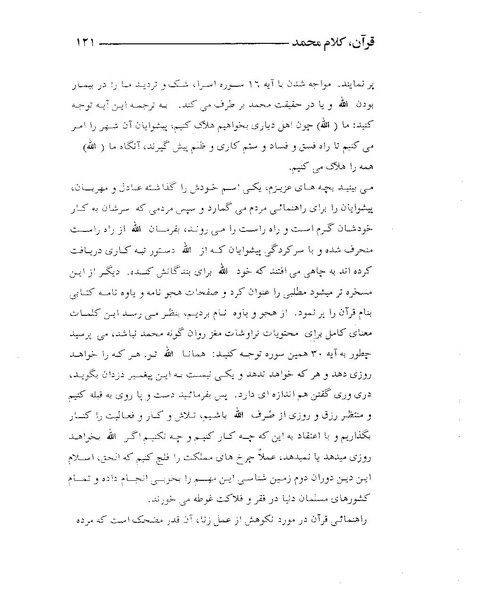 قرآن، کلام محمد ۱۲۱
پر نمایند. مواجه شدن با آیه ۱۶ سوره اسرا، شک و تردید ما را در بیمار
بودن الله و یا در حقیقت محمد بر طرف می کند. به ترجمه این آیه توجه
کنید: ما (الله) چون اهل دیاری بخواهیم هلاک کنیم، پیشوایان آن شهر را امر
می کنیم تا راه فسق و فساد و ستم کاری و ظلم پیش گیرند، آنگاه ما (الله)
همه را هلاک می کنیم.
می بینید بچه های عزیزم، یکی اسم خودش را گذاشته عادل و مهربان،
پیشوایان را برای راهنمائی مردم می گمارد و سپس مردمی که سرشان به کار
خودشان گرم است و راه راست را می روند، بفرمان الله از راه راست
منحرف شده و با سرکردگی پیشوایان که از الله دستور تبه کاری دریافت
کرده اند به چاهی می افتند که خود الله برای بندگانش کنده. دیگر از این
مسخره تر میشود مطلبی را عنوان کرد و صفحات هجو نامه و یاوه نامه کتابی
بنام قرآن را پر نمود. از هجو و یاوه نام بردیم، بنظر می رسد این کلمات
معنای کامل برای محتویات تراوشات مغز روان گونه محمد نباشد، می پرسید
چطور به آیه ۳۰ همین سوره توجه کنید: همانا الله تو، هر که را خواهد
روزی دهد و هر که خواهد ندهد و یکی نیست به این پیغمبر دزدان بگوید،
دری وری گفتن هم اندازه ای دارد. پس بفرمائید دست و پا روی به قبله کنیم
و منتظر رزق و روزی از طرف الله باشیم، تلاش و کار و فعالیت را کنار
بگذاریم و با اعتقاد به این که چه کار کنیم و چه نکنیم اگر الله بخواهد
روزی میدهد یا نمیدهد، عملاً چرخ های مملکت را فلج کنیم که الحق، اسلام
این دین دوران دوم زمین شناسی این مهم را بخوبی انجام داده و تمام
کشورهای مسلمان دنیا در فقر و فلاکت غوطه می خورند.
راهنمائی قرآن در مورد نکوهش از عمل زنا، آن قدر مضحک است که مرده